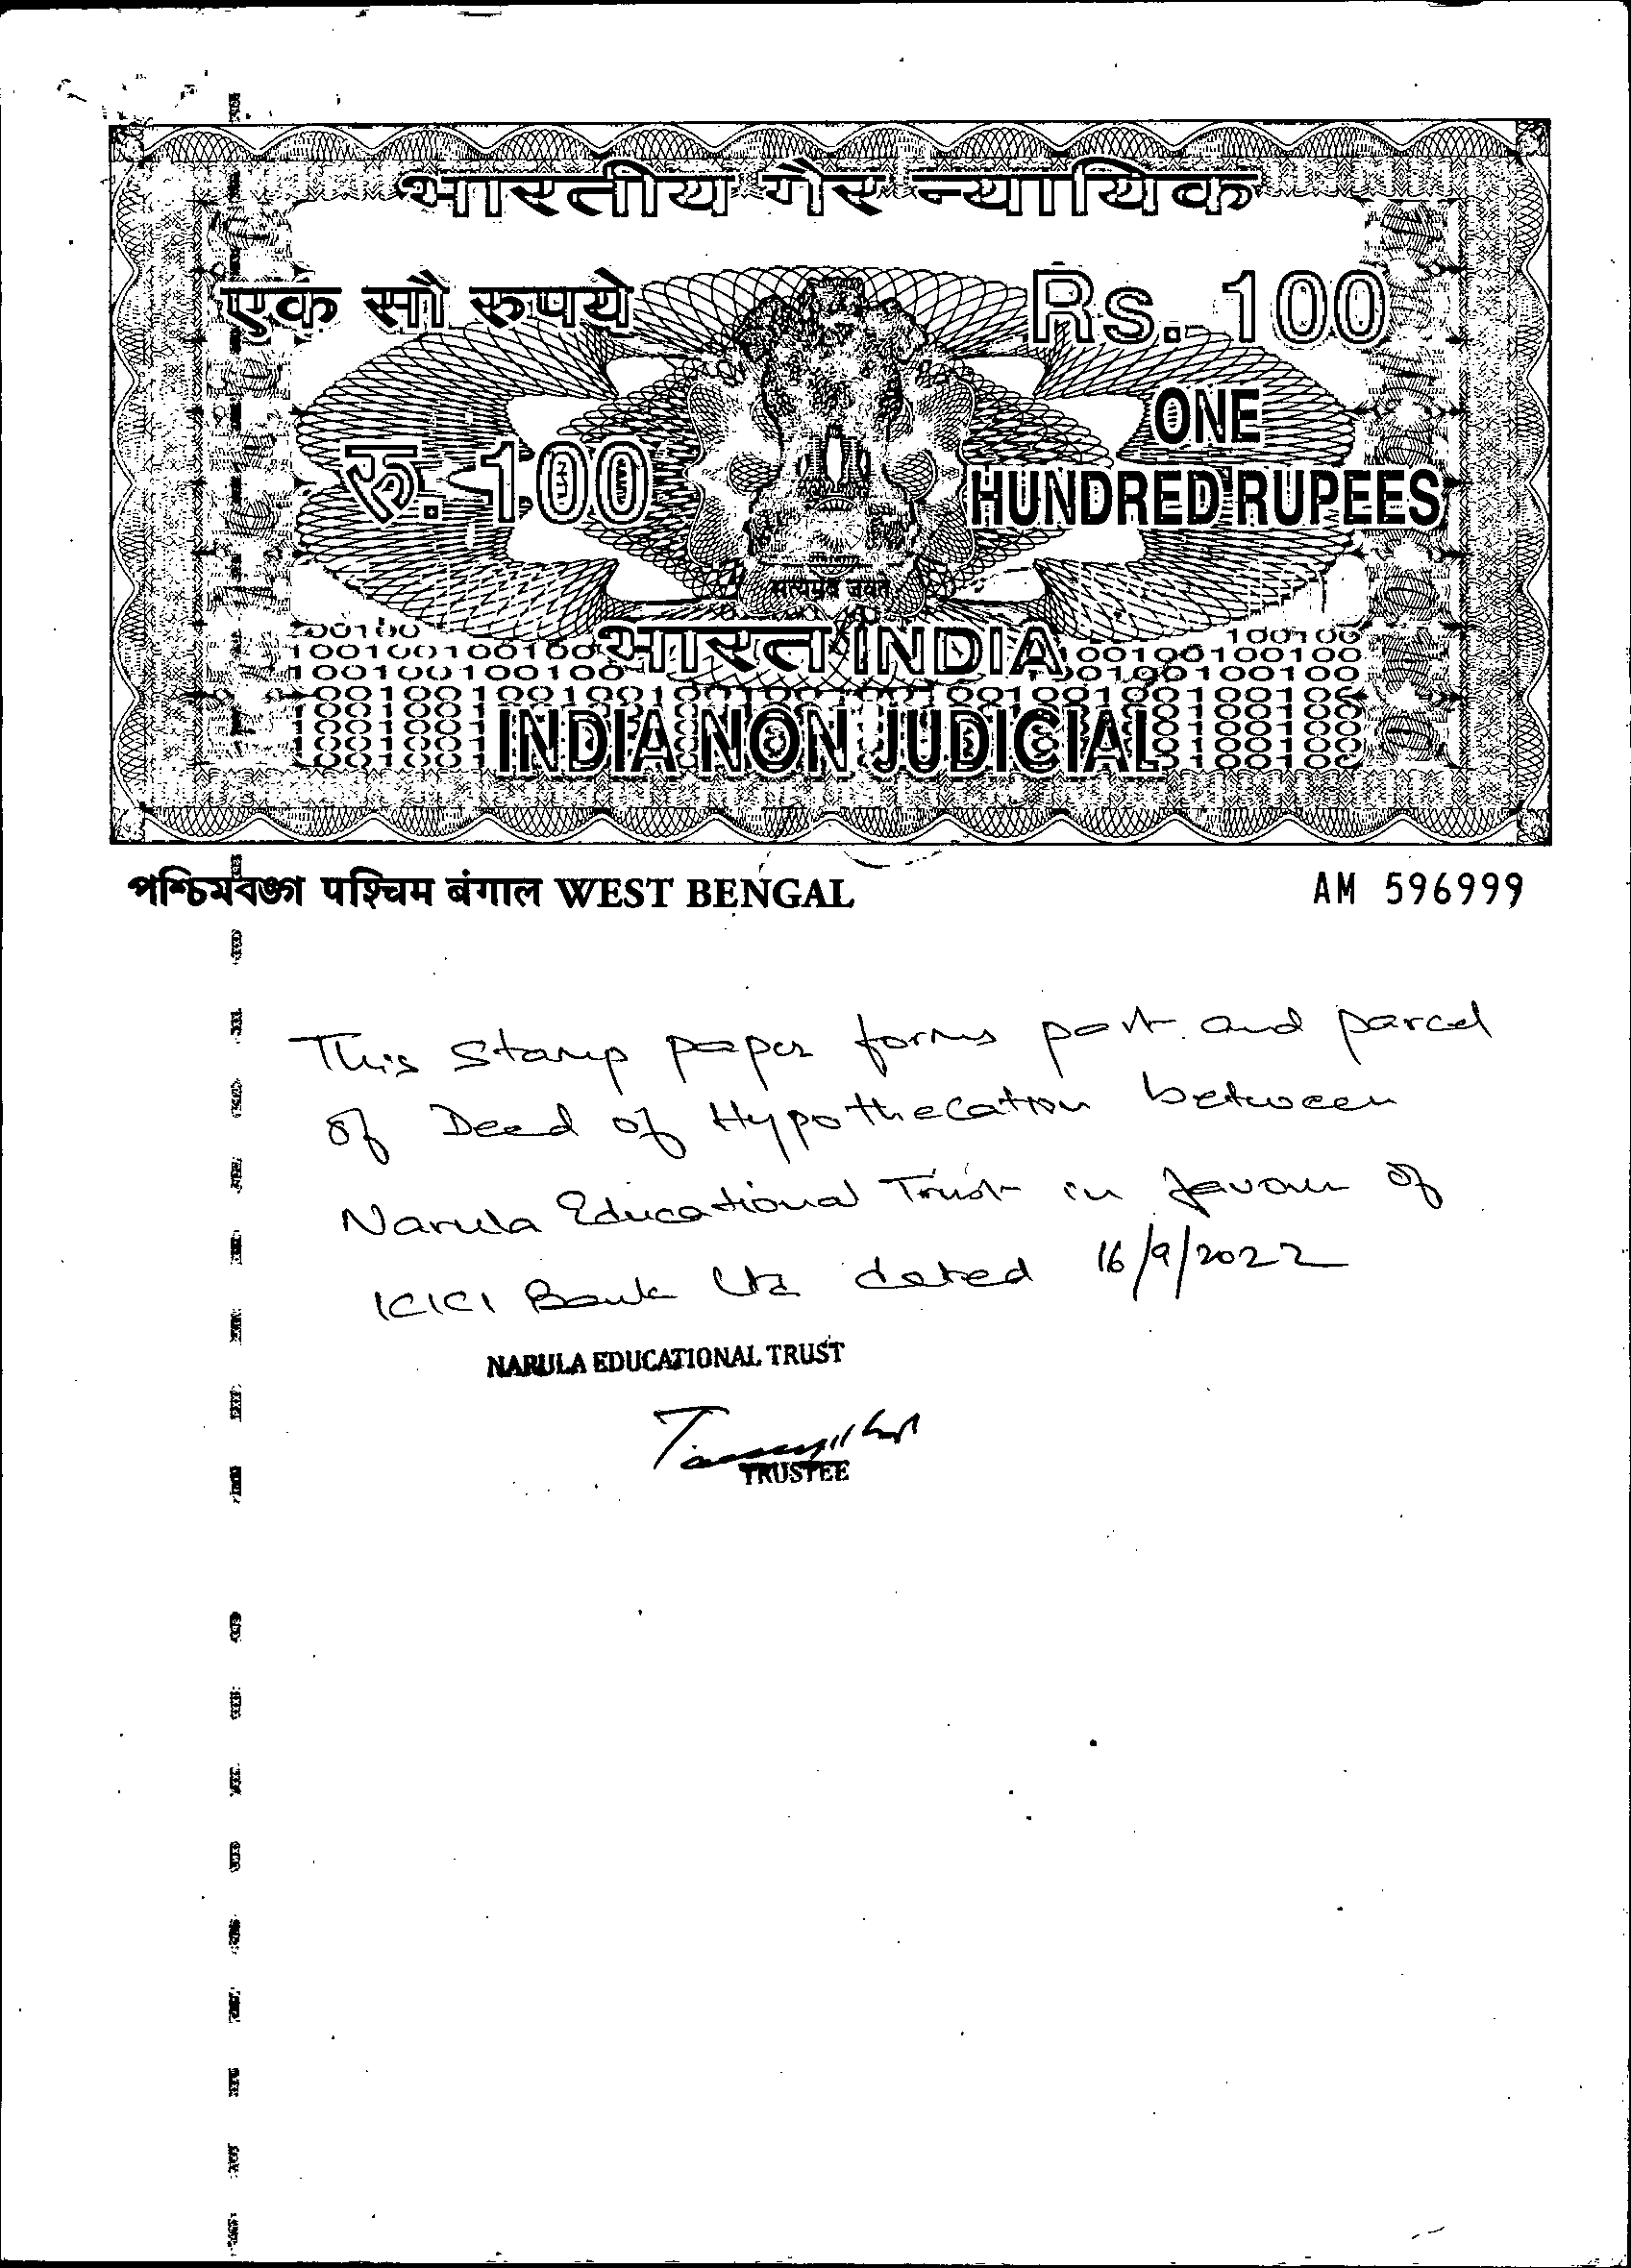 भारतीय गैर न्यायिक
एक सौ रुपये
Rs. 100
रु. 100
ONE
HUNDRED RUPEES
सत्यमेव जयते
भारत INDIA
INDIA NON JUDICIAL
পশ্চিমবঙ্গ पश्चिम बंगाल WEST BENGAL
AM 596999
This Stamp paper forms part and parcel
of Deed of Hypothecation between
Narula Educational Trust in favour of
ICICI Bank Ltd dated 16/9/2022
NARULA EDUCATIONAL TRUST
TRUSTEE